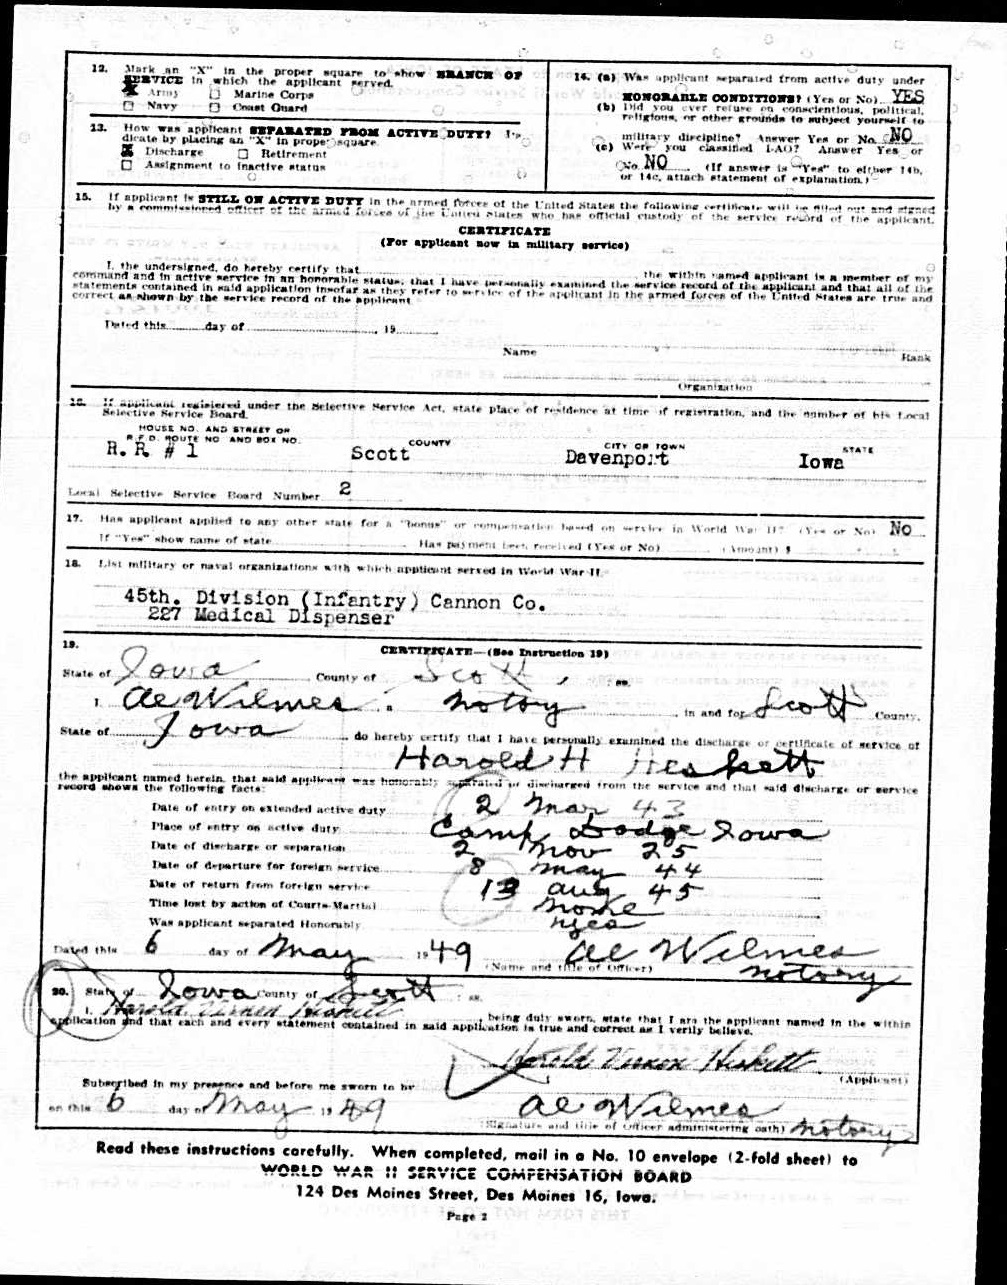 12. Mark an "X" in the proper square to show BRANCH OF
SERVICE in which the applicant served.
X Army □ Marine Corps
□ Navy □ Coast Guard
13. How was applicant SEPARATED FROM ACTIVE DUTY? In-
dicate by placing an "X" in proper square.
X Discharge □ Retirement
□ Assignment to inactive status
14. (a) Was applicant separated from active duty under
HONORABLE CONDITIONS? (Yes or No) YES
(b) Did you ever refuse on conscientious, political,
religious, or other grounds to subject yourself to
military discipline? Answer Yes or No. NO
(c) Were you classified I-AO? Answer Yes or
No. NO (If answer is "Yes" to either 14b,
or 14c, attach statement of explanation.)
15. If applicant is STILL ON ACTIVE DUTY in the armed forces of the United States the following certificate will be filled out and signed
by a commissioned officer of the armed forces of the United States who has official custody of the service record of the applicant.
CERTIFICATE
(For applicant now in military service)
I, the undersigned, do hereby certify that the within named applicant is a member of my
command and in active service in an honorable status; that I have personally examined the service record of the applicant and that all of the
statements contained in said application insofar as they refer to service of the applicant in the armed forces of the United States are true and
correct as shown by the service record of the applicant.
Dated this day of , 19
Name Rank
Organization
16. If applicant registered under the Selective Service Act, state place of residence at time of registration, and the number of his Local
Selective Service Board.
HOUSE NO. AND STREET OR
R.F.D. ROUTE NO. AND BOX NO. COUNTY CITY OR TOWN STATE
R. R. # 1 Scott Davenport Iowa
Local Selective Service Board Number 2
17. Has applicant applied to any other state for a "bonus" or compensation based on service in World War II? (Yes or No) No
If "Yes" show name of state Has payment been received (Yes or No) (Amount) $
18. List military or naval organizations with which applicant served in World War II.
45th. Division (Infantry) Cannon Co.
227 Medical Dispenser
19. CERTIFICATE—(See Instruction 19)
State of Iowa County of Scott, ss.
I, Al Wilmes a Notory in and for Scott County,
State of Iowa do hereby certify that I have personally examined the discharge or certificate of service of
Harold H Heskett
the applicant named herein, that said applicant was honorably separated or discharged from the service and that said discharge or service
record shows the following facts:
Date of entry on extended active duty 2 Mar 43
Place of entry on active duty Camp Dodge Iowa
Date of discharge or separation 2 Nov 25
Date of departure for foreign service 8 May 44
Date of return from foreign service 13 Aug 45
Time lost by action of Courts-Martial None
Was applicant separated Honorably yes
Dated this 6 day of May 1949 Al Wilmes
(Name and title of Officer) Notory
20. State of Iowa County of Scott : ss.
I, Harold Vernon Heskett, being duly sworn, state that I am the applicant named in the within
application and that each and every statement contained in said application is true and correct as I verily believe.
Harold Vernon Heskett
(Applicant)
Subscribed in my presence and before me sworn to by
on this 6 day of May 1949 Al Wilmes
(Signature and title of Officer administering oath) Notory
Read these instructions carefully. When completed, mail in a No. 10 envelope (2-fold sheet) to
WORLD WAR II SERVICE COMPENSATION BOARD
124 Des Moines Street, Des Moines 16, Iowa.
Page 2